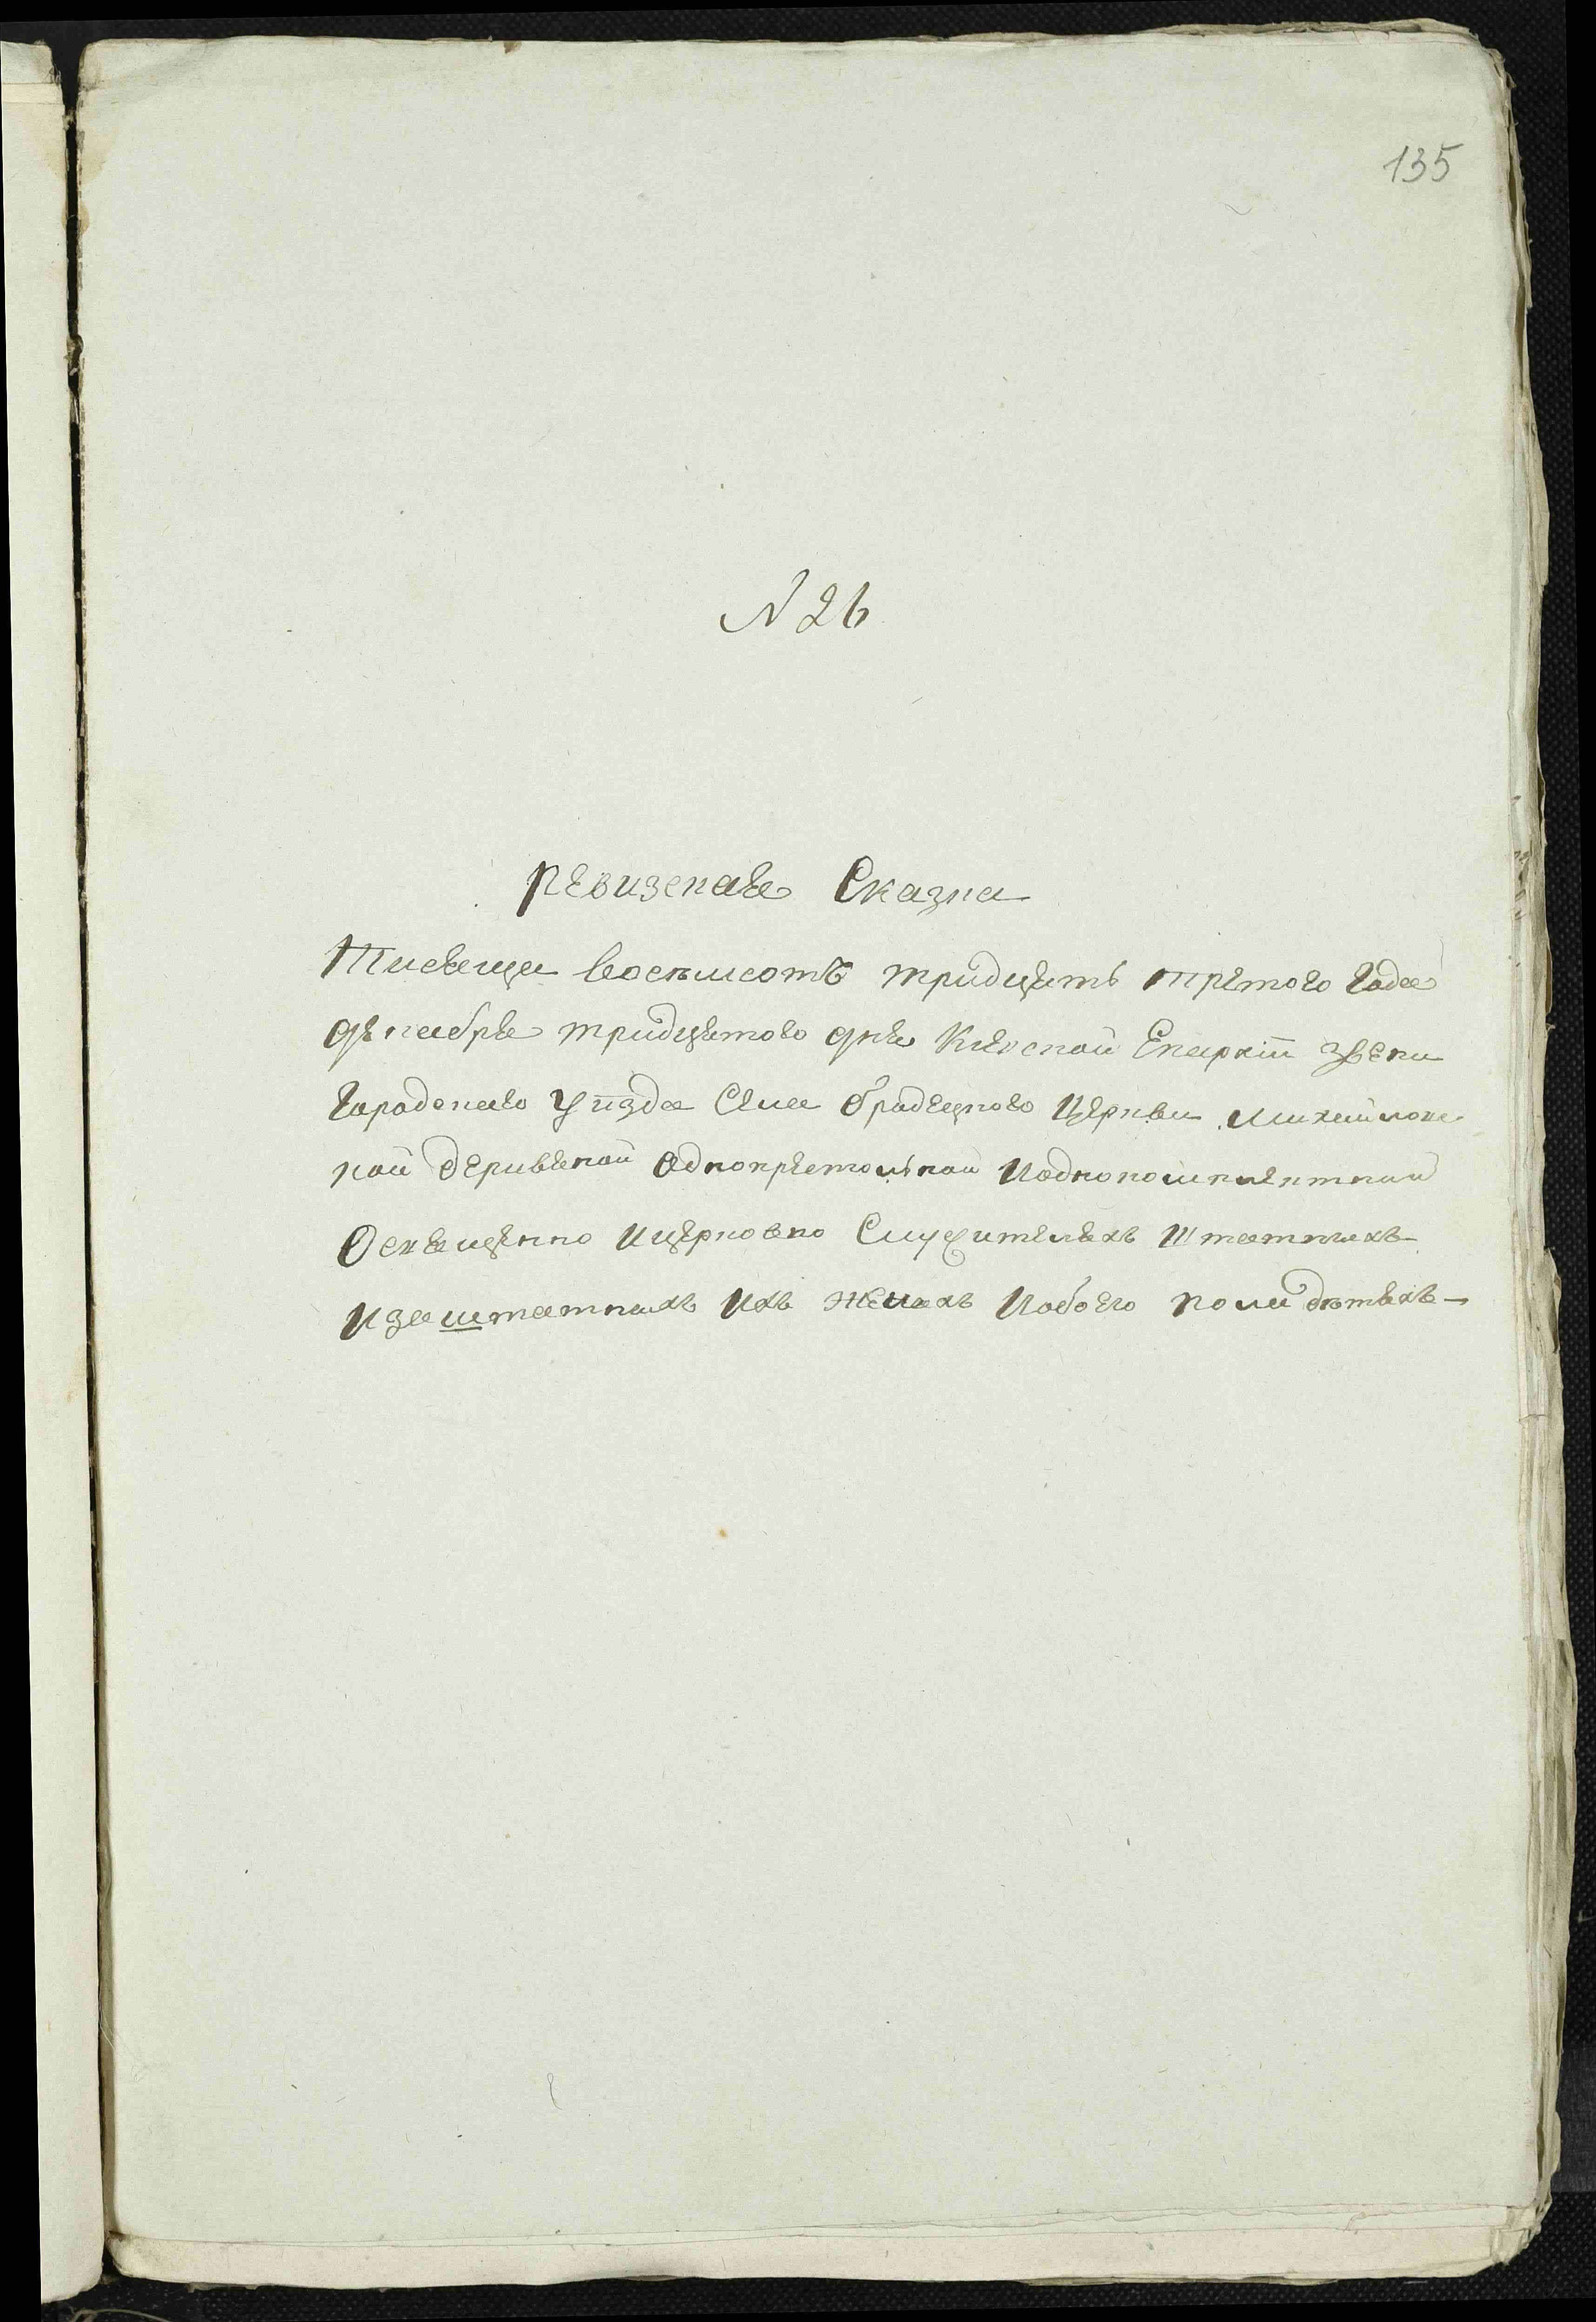 135
N 26
Ревизская Сказка
Тисяща восѣмсотъ тридцять третого Года
декабря тридцятого дня Киевской Епархіи Звени
Городскаго Уѣзда Села Брадецкого Церкви Михайловс
кой деривяной однопрестольной И одноко
Освященно И церковно Служителяхъ Штатныхъ
И заштатныхъ Ихъ женахъ И обоего пола дѣтяхъ —